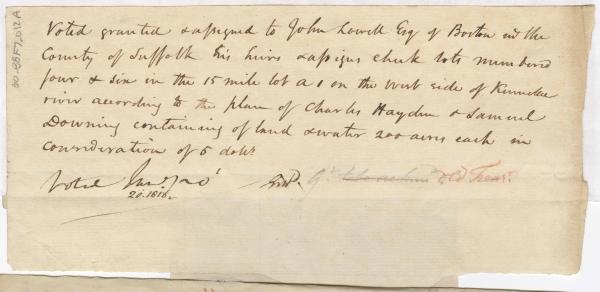 Voted granted & assigned to John Lowell Esq of Boston in the
County of Suffolk his heirs & assigns check lots numbered
four & six in the 15 mile lot a 1 on the west side of Kennebec
river according to the plan of Charles Hayden & Samuel
Downing containing of land & water 200 acres each in
consideration of 5 dolls
Voted
20. 1818.
Gd Treasr.